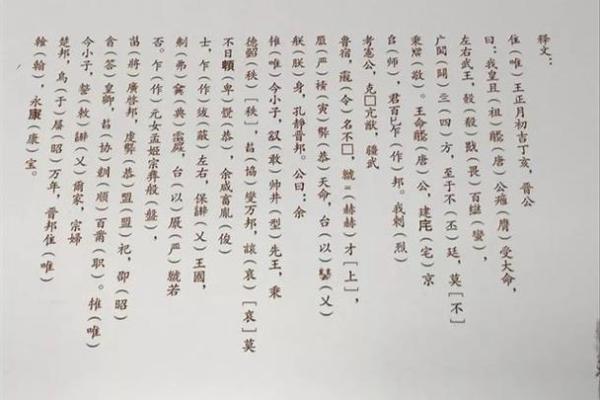 释文：
住（唯）王正月初吉丁亥，晋公
曰：我皇且（祖）䣊（唐）公膺（膺）受大命，
左右武王，㲃（㲃）㱁（畏）百䜌（蠻），
广闢（闢）三（四）方，至于不（丕）廷，莫［不］
秉㬎（敬）。王命䣊（唐）公，建宅（宅）京
𠂤（师），君百乍（作）邦。我剌（烈）
考憲公，克□亢猷，彊武
鲁宿，霝（令）名不□，虩＝（赫赫）才［上］，
严（严）寅（寅）龏（恭）天命，台（以）（乂）
朕（朕）身，孔静晋邦。公曰：余
惟（唯）今小子，敢（敢）帅井（型）先王，秉
德（秩）［秩］，（协）燮万邦，諒（哀）［哀］莫
不日頼（卑）（恭），余咸畜胤（俊）
士，乍（作）左右，保辥（乂）王國，
弗（典），台（以）厥（严）虩若
否。乍（作）元女孟姬宗彝般（盤），
將廣啓邦，虔龏（恭）盟（盟）祀，卲（昭）
會（答）皇卿，（协）（順）百黹（职）。惟（唯）
今小子，（敕）辥（乂）爾家，宗婦
楚邦，烏（于）屖（昭）万年，晋邦住（唯）
翰（翰），永康（康）宝。